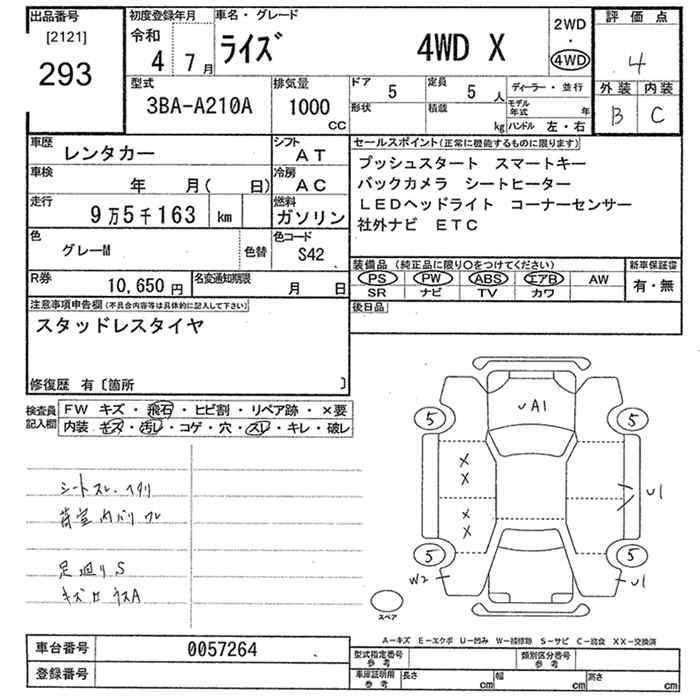 出品番号
[2121]
293
初度登録年月
令和
4 7月
車名・グレード
ライズ 4WD X
2WD
・
4WD
評価点
4
外装 内装
B C
型式
3BA-A210A
排気量
1000
CC
ドア 5
定員 5 人
形状
積載 kg
ディーラー・並行
モデル年式 年
ハンドル 左・右
車歴
レンタカー
シフト
AT
車検
年 月( 日)
冷房
AC
走行
9万5千163 km
燃料
ガソリン
色
グレーM
色替
色コード
S42
R券
10,650円
名変通知期限
月 日
セールスポイント(正常に機能するものに限ります)
プッシュスタート スマートキー
バックカメラ シートヒーター
LEDヘッドライト コーナーセンサー
社外ナビ ETC
装備品 (純正品に限り○をつけてください)
PS PW ABS エアB AW
SR ナビ TV カワ
新車保証書
有・無
後日品
注意事項申告欄(不具合内容等は具体的に記入して下さい)
スタッドレスタイヤ
修復歴 有〔箇所 〕
検査員記入欄
FW キズ・飛石・ヒビ割・リペア跡・×要
内装・キズ・汚レ・コゲ・穴・スレ・キレ・破レ
シートスレ・ヘタリ
荷室内バリ ワレ
足廻リS
A1
5 5
X
X
X
X
U1
5 5
W2
U1
スペア
A-キズ E-エクボ U-凹み W-補修跡 S-サビ C-腐食 XX-交換済
車台番号 0057264
登録番号
型式指定番号
参考
類別区分番号
参考
車庫証明用
参考
長さ cm
幅 cm
高さ cm